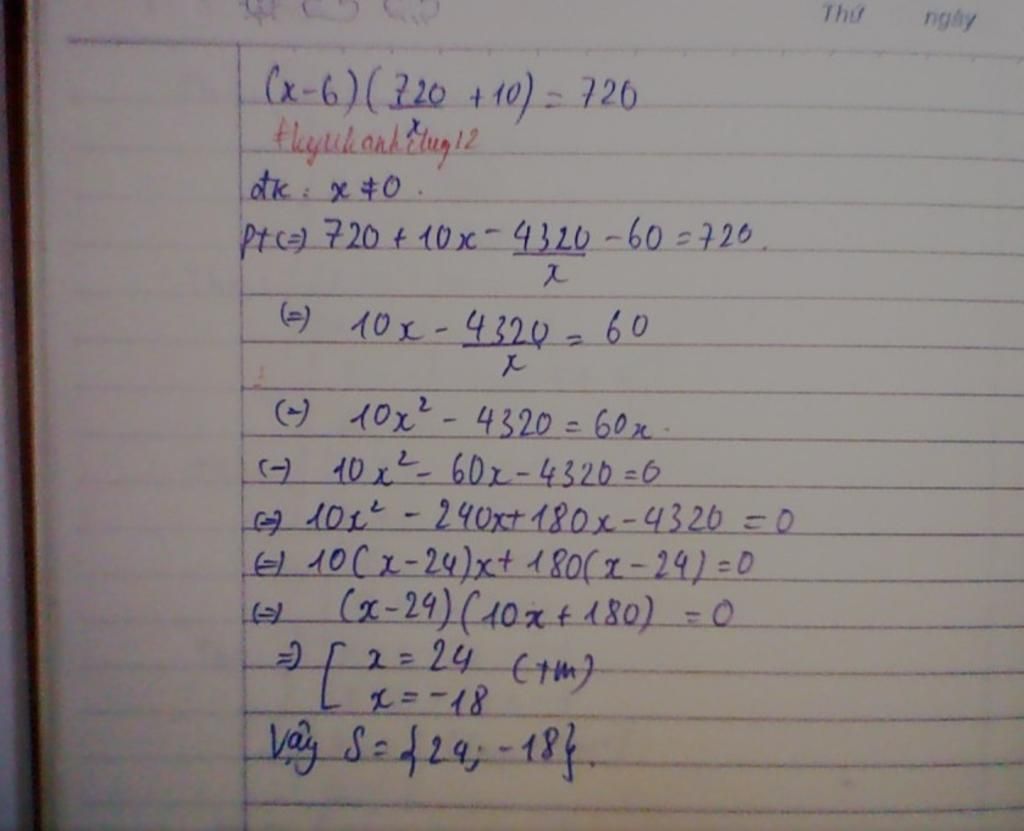 Thứ ngày
(x-6)(720/x +10) = 720
đk: x ≠ 0.
pt <=> 720 + 10x - 4320/x - 60 = 720.
(=) 10x - 4320/x = 60
(-) 10x² - 4320 = 60x.
(-) 10x² - 60x - 4320 = 0
(=) 10x² - 240x + 180x - 4320 = 0
(=) 10(x-24)x + 180(x-24) = 0
(=) (x-24)(10x + 180) = 0
=> [ x = 24 (tm)
x = -18
Vậy S = {24; -18}.